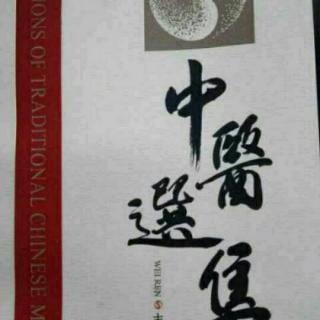 IONS OF TRADITIONAL CHINESE M
中醫選集
WEI REN